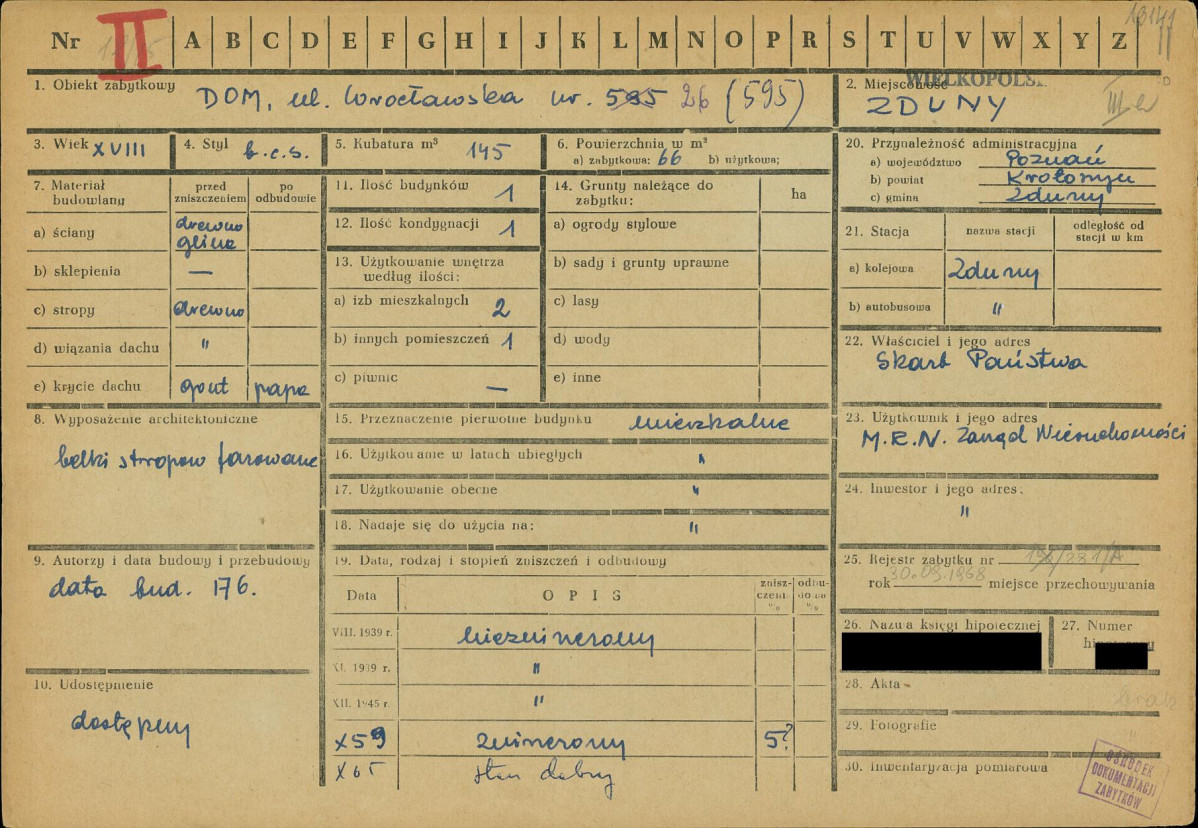 Nr II A B C D E F G H I J K L M N O P R S T U V W X Y Z
WIELKOPOLS
1. Obiekt zabytkowy DOM, ul. Wrocławska nr. 595 26 (595)
2. Miejscowość
ZDUNY
3. Wiek XVIII
4. Styl b.c.s.
5. Kubatura m³ 145
6. Powierzchnia w m²
a) zabytkowa: 66 b) użytkowa;
7. Materiał budowlany
przed zniszczeniem
po odbudowie
a) ściany drewno glina
b) sklepienia —
c) stropy drewno
d) wiązania dachu "
e) krycie dachu gont papa
8. Wyposażenie architektoniczne
belki stropow fazowane
9. Autorzy i data budowy i przebudowy
data bud. 176.
10. Udostępnienie
dostępny
11. Ilość budynków 1
12. Ilość kondygnacji 1
13. Użytkowanie wnętrza
według ilości:
a) izb mieszkalnych 2
b) innych pomieszczeń 1
c) piwnic —
14. Grunty należące do
zabytku:
ha
a) ogrody stylowe
b) sady i grunty uprawne
c) lasy
d) wody
e) inne
15. Przeznaczenie pierwotne budynku mieszkalne
16. Użytkowanie w latach ubiegłych "
17. Użytkowanie obecne "
18. Nadaje się do użycia na: "
19. Data, rodzaj i stopień zniszczeń i odbudowy
Data
OPIS
znisz-
czenia
%
odbu-
dowa
%
VIII. 1939 r. niezmieniony
XI. 1939 r. "
XII. 1945 r. "
X 59 5?
X 65 stan dobry
20. Przynależność administracyjna
a) województwo Poznań
b) powiat Krotoszyn
c) gmina Zduny
21. Stacja
nazwa stacji
odległość od
stacji w km
a) kolejowa Zduny
b) autobusowa "
22. Właściciel i jego adres
Skarb Państwa
23. Użytkownik i jego adres
M.R.N. Zarząd Nieruchomości
24. Inwestor i jego adres:
"
25. Rejestr zabytku nr
rok 30.09.1968 miejsce przechowywania
26. Nazwa księgi hipotecznej
27. Numer
28. Akta
brak
29. Fotografie "
30. Inwentaryzacja pomiarowa
OŚRODEK
DOKUMENTACJI
ZABYTKÓW